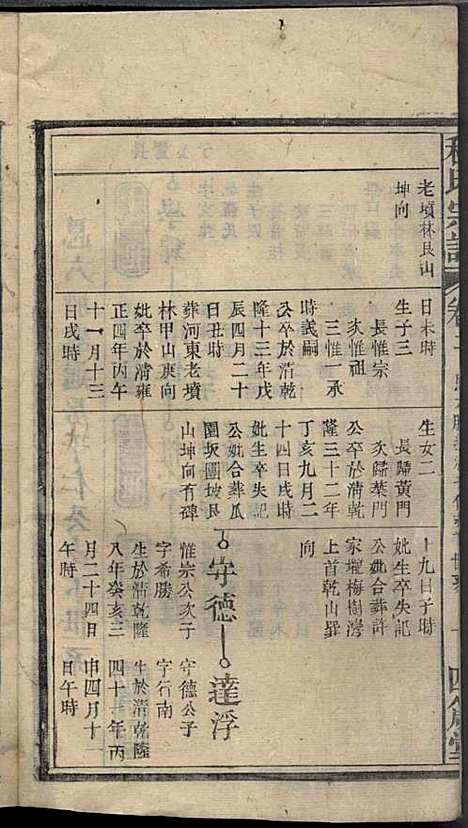 老墳林艮山
坤向
日未時
生子三
長惟宗
次惟祖
三惟一承
時義嗣
公卒於清乾
隆十三年戊
辰四月二十
日丑時
葬河東老墳
林甲山庚向
妣卒於清雍
正四年丙午
十一月十三
日戌時
生女二
長歸黃門
次歸葉門
公卒於清乾
隆三十二年
丁亥九月二
十四日戌時
妣生卒失記
公妣合葬瓜
園坂團坡艮
山坤向有碑
十九日子時
妣生卒失記
公妣合葬許
家壠梅樹灣
上首乾山巽
向
守德
惟宗公次子
字希勝
生於清乾隆
八年癸亥三
月二十四日
午時
達浮
守德公子
字行南
生於清乾隆
四十一年丙
申四月十一
日午時
氏宗譜 卷